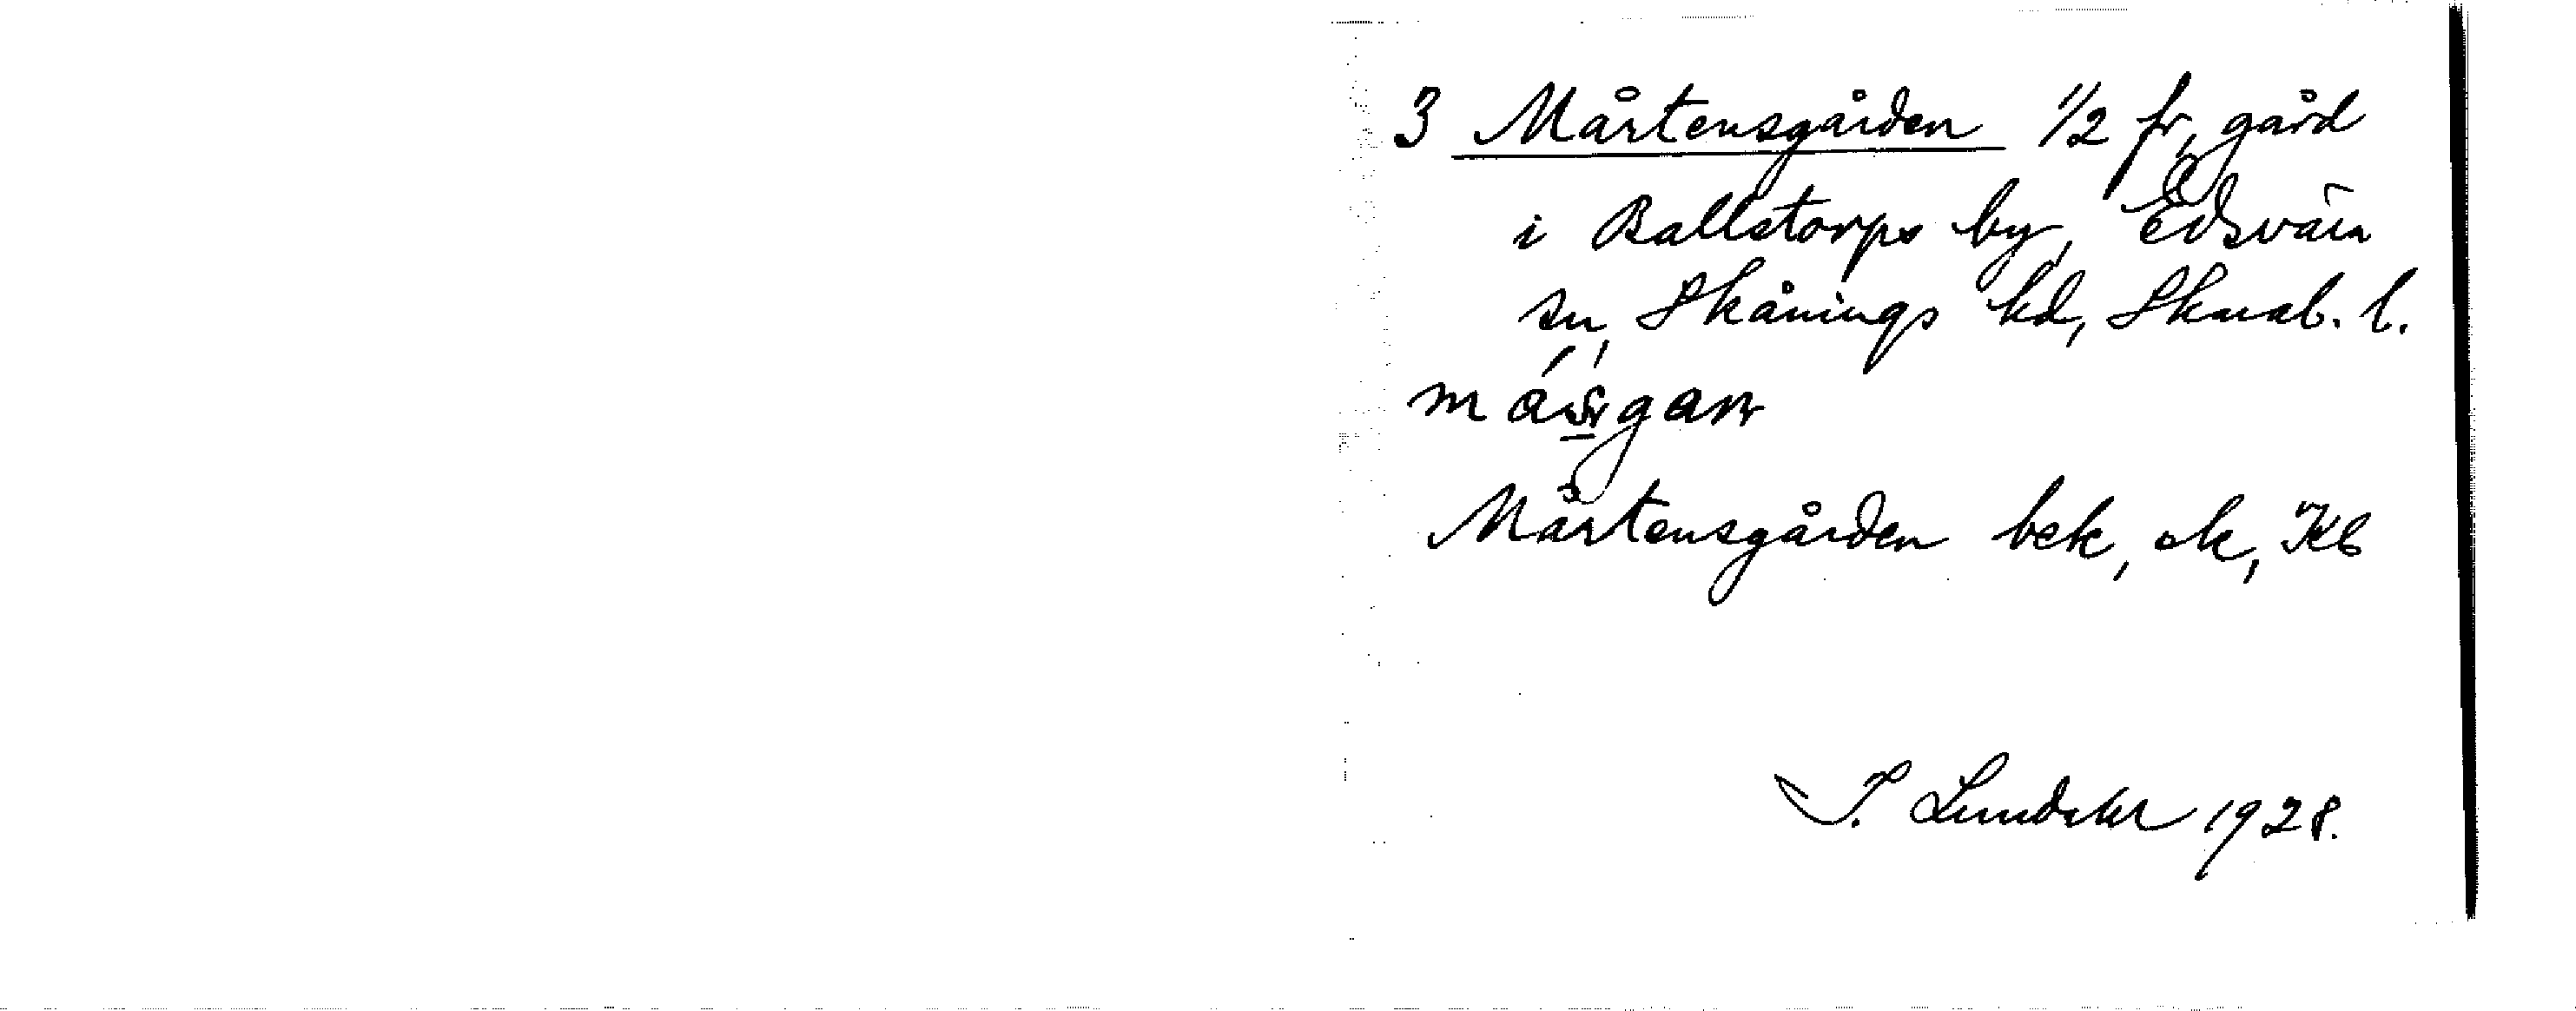 3 Mårtensgården 1/2 fr, gård
i Ballstorps by, Edsvära
sn, Skånings hd, Skarab. l.
Mårtensgården bek, ek, Kb
Lundahl 1928.